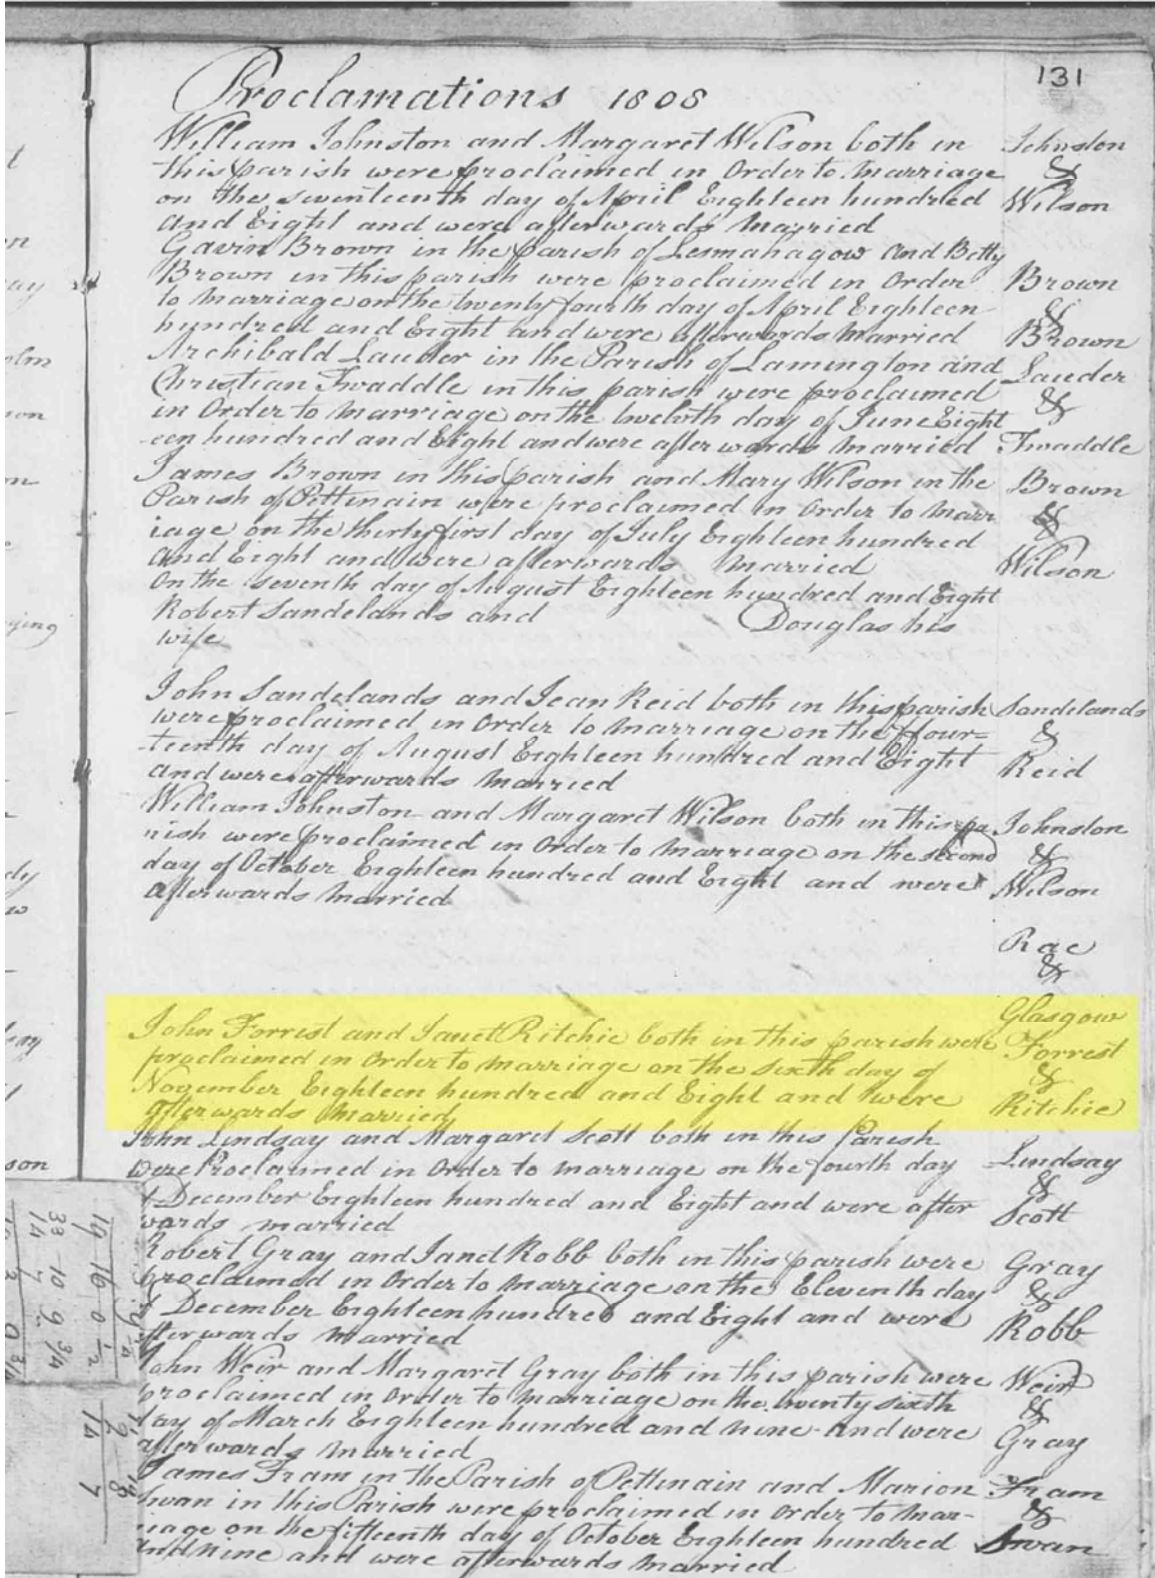 131
Proclamations 1808
William Johnston and Margaret Wilson both in
this parish were proclaimed in Order to marriage
on the seventeenth day of April Eighteen hundred
and Eight and were afterwards married
Johnston
&
Wilson
Gavin Brown in the parish of Lesmahagow and Betty
Brown in this parish were proclaimed in Order
to marriage on the twenty fourth day of April Eighteen
hundred and Eight and were afterwards married
Brown
&
Brown
Archibald Lauder in the Parish of Lamington and
Christian Twaddle in this parish were proclaimed
in Order to marriage on the twelvth day of June Eight
-een hundred and Eight and were afterwards married
Lauder
&
Twaddle
James Brown in this parish and Mary Wilson in the
Parish of Pettinain were proclaimed in Order to marr
iage on the thirty first day of July Eighteen hundred
and Eight and were afterwards married
Brown
&
Wilson
On the seventh day of August Eighteen hundred and Eight
Robert Sandelands and Douglas his
wife
John Sandelands and Jean Reid both in this parish
were proclaimed in Order to marriage on the ffour=
-teenth day of August Eighteen hundred and Eight
and were afterwards married
Sandelands
&
Reid
William Johnston and Margaret Wilson both in this pa
rish were proclaimed in Order to marriage on the second
day of October Eighteen hundred and Eight and were
afterwards married
Johnston
&
Wilson
Rae
&
Glasgow
John Forrest and Janet Ritchie both in this parish were
proclaimed in Order to marriage on the sixth day of
November Eighteen hundred and Eight and were
afterwards married
Forrest
&
Ritchie
John Lindsay and Margaret Scott both in this Parish
were Proclaimed in Order to marriage on the fourth day
of December Eighteen hundred and Eight and were after
wards married
Lindsay
&
Scott
Robert Gray and Janet Robb both in this parish were
proclaimed in Order to marriage on the Eleventh day
of December Eighteen hundred and Eight and were
afterwards married
Gray
&
Robb
John Weir and Margaret Gray both in this parish were
proclaimed in Order to marriage on the twenty sixth
day of March Eighteen hundred and nine and were
afterwards married
Weir
&
Gray
James Fram in the Parish of Pettinain and Marion
Swan in this Parish were proclaimed in Order to mar-
riage on the fifteenth day of October Eighteen hundred
and nine and were afterwards married
Fram
&
Swan